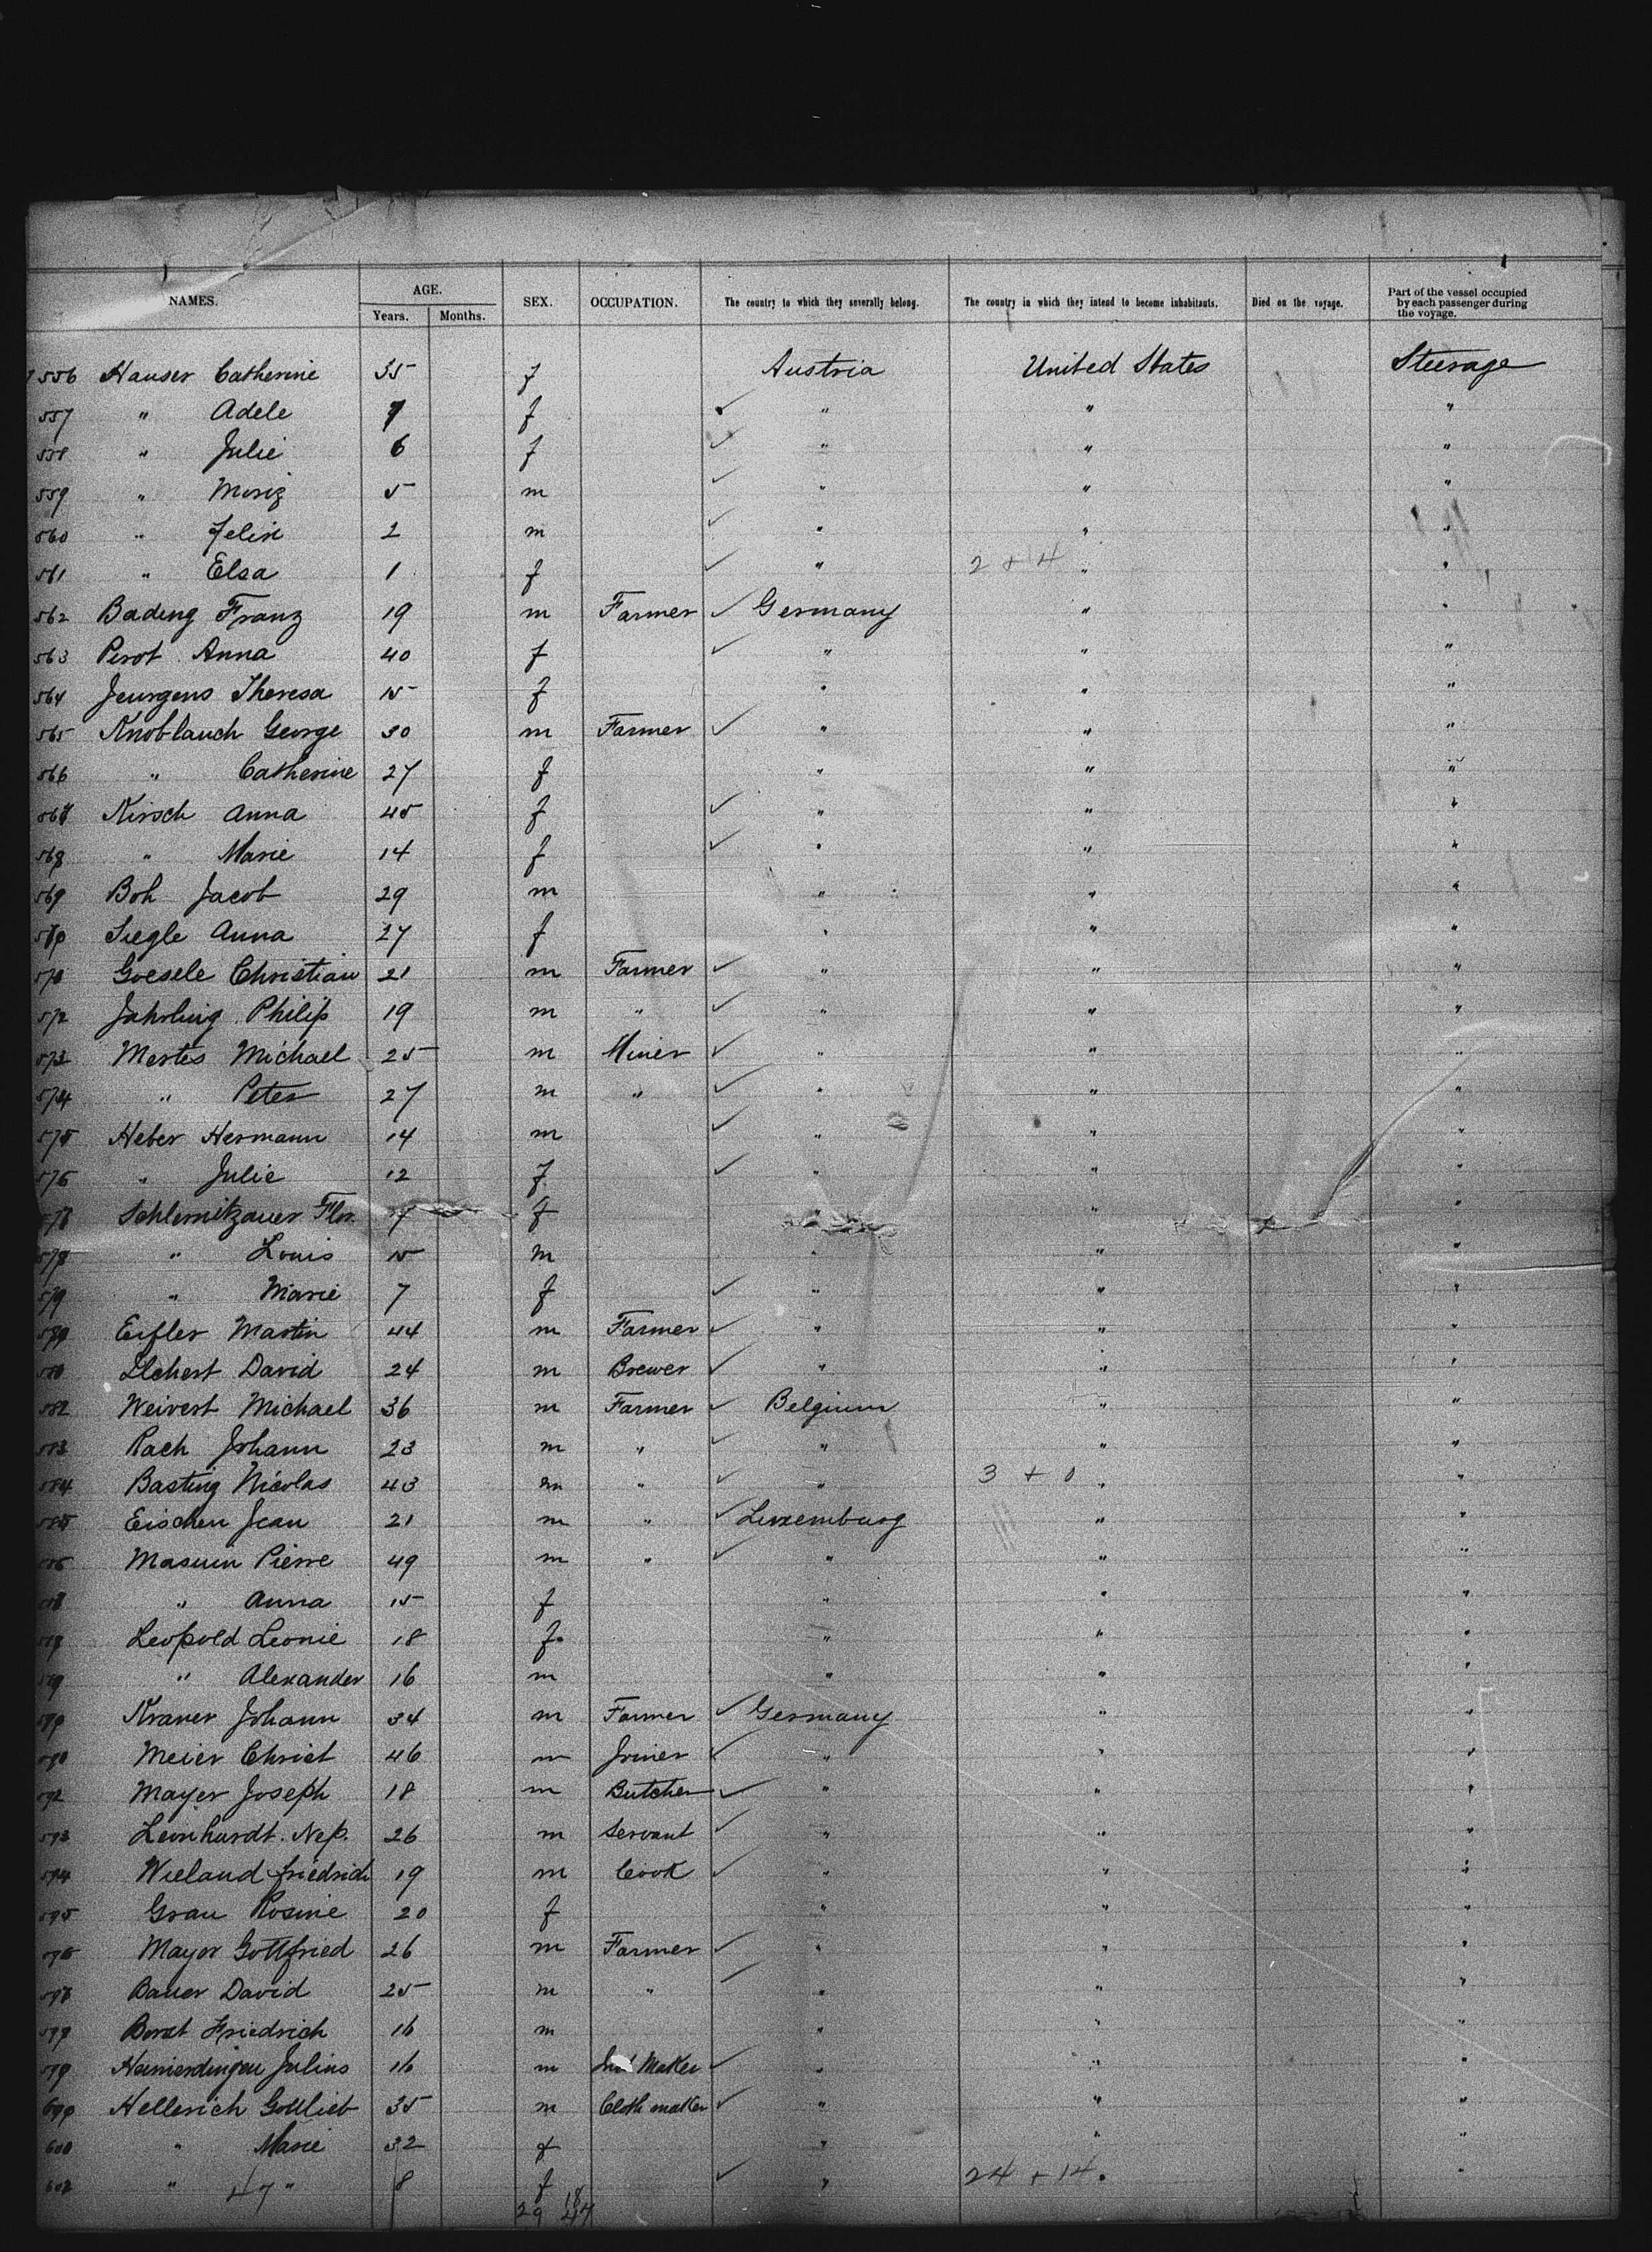 NAMES. AGE. SEX. OCCUPATION. The country to which they severally belong. The country in which they intend to become inhabitants. Died on the voyage. Part of the vessel occupied by each passenger during the voyage.
Years. Months.
556 Hauser Catherine 35 f Austria United States Steerage
557 " Adele 7 f " " "
558 " Julie 6 f " " "
559 " Moriz 5 m " " "
560 " Felix 2 m " " "
561 " Elsa 1 f " 2 + 4 " "
562 Bading Franz 19 m Farmer Germany " "
563 Perot Anna 40 f " " "
564 Jeurgens Theresa 15 f " " "
565 Knoblauch George 30 m Farmer " " "
566 " Catherine 27 f " " "
567 Kirsch Anna 45 f " " "
568 " Marie 14 f " " "
569 Boh Jacob 29 m " " "
570 Siegle Anna 27 f " " "
571 Goesele Christian 21 m Farmer " " "
572 Jahrling Philip 19 m " " " "
573 Mertes Michael 25 m Miner " " "
574 " Peter 27 m " " " "
575 Heber Hermann 14 m " " "
576 " Julie 12 f " " "
577 Schlemitzauer Flor. f " " "
578 " Louis 15 m " " "
579 " Marie 7 f " " "
580 Eifler Martin 44 m Farmer " " "
581 Ilchert David 24 m Brewer " " "
582 Weivert Michael 36 m Farmer Belgium " "
583 Rach Johann 23 m " " " "
584 Basting Nicolas 43 m " " 3 + 0 " "
585 Eischen Jean 21 m " Luxemburg " "
586 Masuin Pierre 49 m " " " "
" Anna 15 f " " "
Leopold Leonie 18 f " " "
589 " Alexander 16 m " " "
590 Kraner Johann 34 m Farmer Germany " "
591 Meier Christ 46 m Joiner " " "
592 Mayer Joseph 18 m Butcher " " "
593 Leonhardt. Nep. 26 m Servant " " "
594 Wieland Friedrich 19 m Cook " " "
595 Grau Rosine 20 f " " "
596 Mayer Gottfried 26 m Farmer " " "
597 Bauer David 25 m " " " "
Borst Friedrich 16 m " " "
599 Julius 16 m Maker " " "
600 Hellerich Gottlieb 35 m Cloth maker " " "
601 " Marie 32 f " " "
602 " 47 " 8 f " 24 + 14 " "
18
29 47